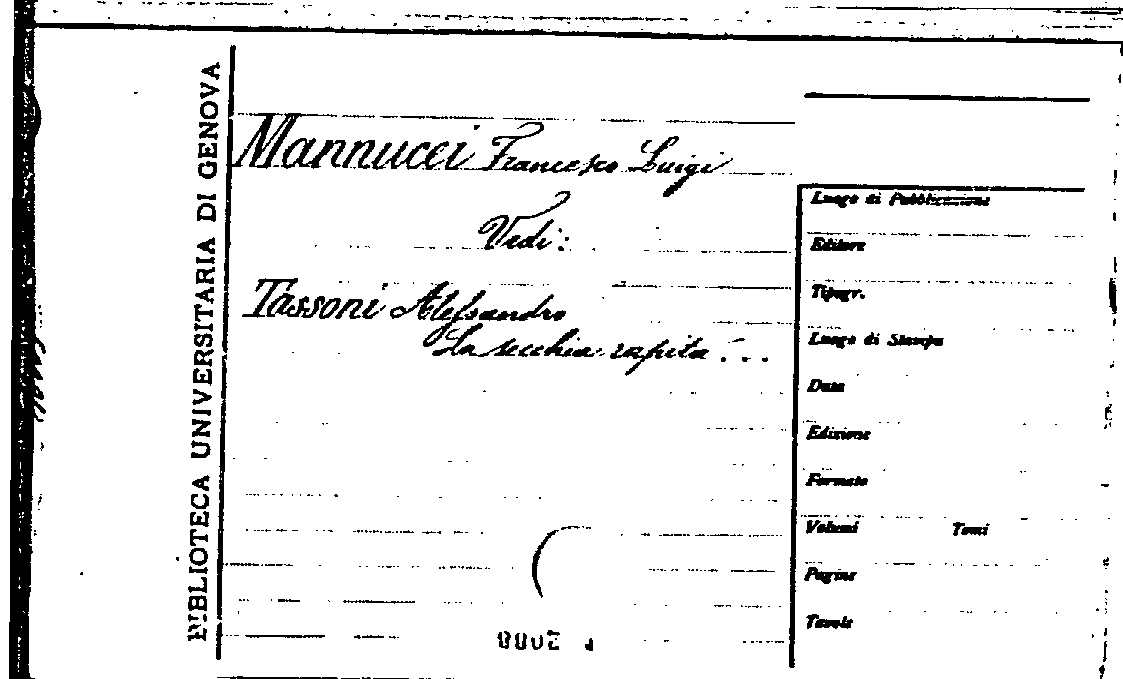 BIBLIOTECA UNIVERSITARIA DI GENOVA
Mannucci Francesco Luigi
Vedi:
Tassoni Alessandro
La secchia rapita ...
Luogo di Pubblicazione
Editore
Tipogr.
Luogo di Stampa
Data
Edizione
Formato
Volumi Tomi
Pagine
Tavole